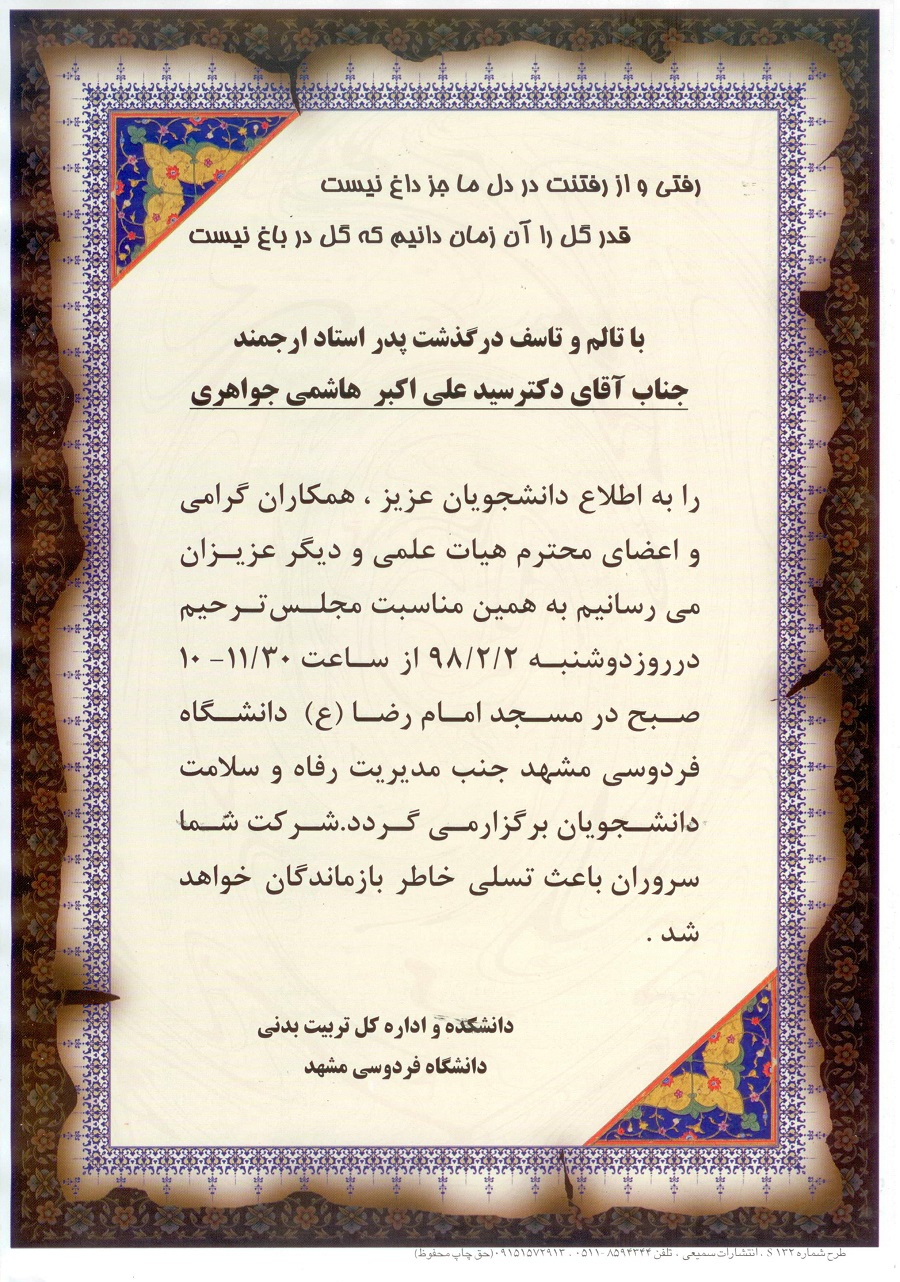 رفتی و از رفتنت در دل ما جز داغ نیست
قدر گل را آن زمان دانیم که گل در باغ نیست
با تالم و تاسف درگذشت پدر استاد ارجمند
جناب آقای دکترسید علی اکبر هاشمی جواهری
را به اطلاع دانشجویان عزیز ، همکاران گرامی
و اعضای محترم هیات علمی و دیگر عزیزان
می رسانیم به همین مناسبت مجلس ترحیم
درروزدوشنبه ۹۸/۲/۲ از ساعت ۱۱/۳۰- ۱۰
صبح در مسجد امام رضا (ع) دانشگاه
فردوسی مشهد جنب مدیریت رفاه و سلامت
دانشجویان برگزارمی گردد.شرکت شما
سروران باعث تسلی خاطر بازماندگان خواهد
شد .
دانشکده و اداره کل تربیت بدنی
دانشگاه فردوسی مشهد
طرح شماره S ۱۳۲ . انتشارات سمیعی . تلفن ۸۵۹۴۳۴۴-۰۵۱۱ . ۰۹۱۵۱۵۷۲۹۱۳ (حق چاپ محفوظ)